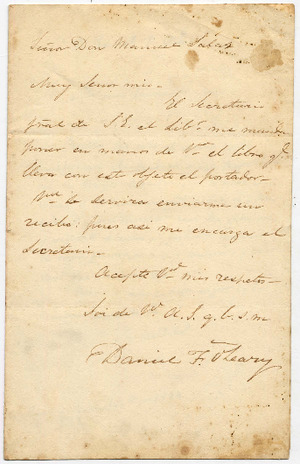 Señor Don Manuel Salas
Muy Señor mio.
El Secretario
gñal de S. E. el Libr me manda
poner en manos de Vd el libro qe
lleva con este objeto el portador.
Se servira enviarme un
recibo: pues asi me encarga el
Secretario.
Acepte Vd mis respetos
Soi de Vd A. S. q. b. s. m
Daniel F. O'Leary